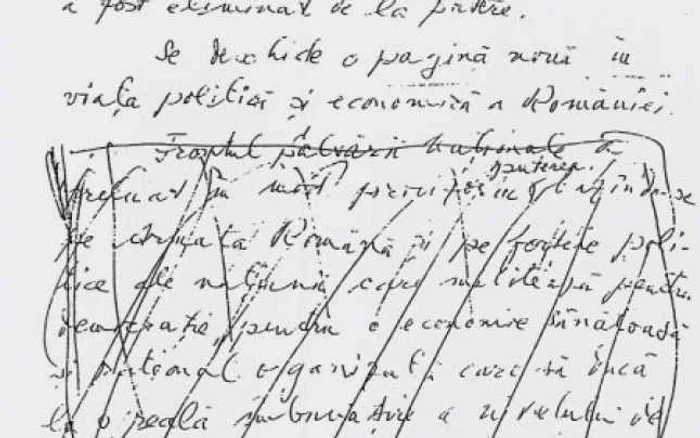 a fost eliminat de la putere.
Se deschide o pagină nouă în
viața politică și economică a României.
Frontul Salvării Naționale a
puterea.
preluat în mod provizoriu sprijinindu-se
pe Armata Română și pe forțele poli-
tice ale națiunii care militează pentru
democrație, pentru o economie sănătoasă
și rațional organizată, care să ducă
la o reală îmbunătățire a nivelului de